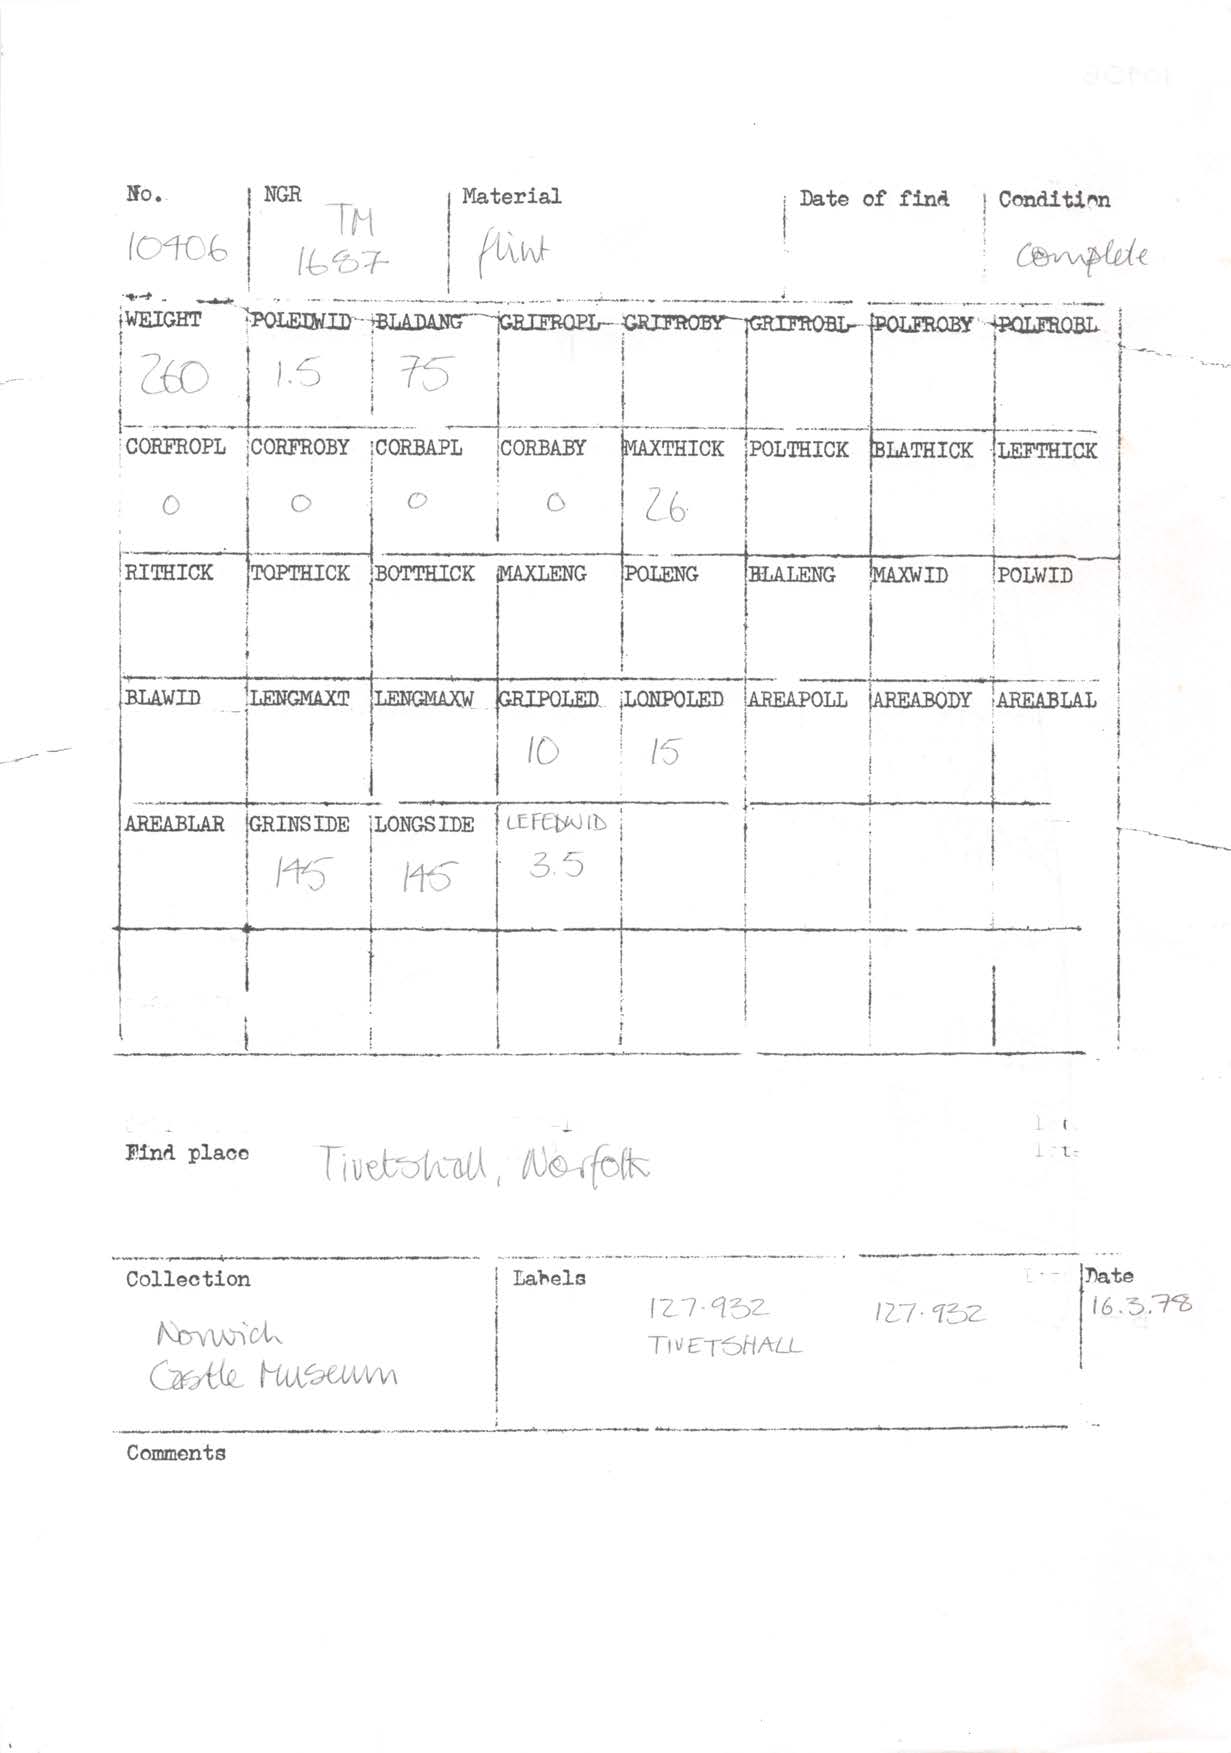 No. NGR Material Date of find Condition
10406 TM 1687 flint complete
WEIGHT POLEDWID BLADANG GRIFROPL GRIFROBY GRIFROBL POLFROBY POLFROBL
260 1.5 75
CORFROPL CORFROBY CORBAPL CORBABY MAXTHICK POLTHICK BLATHICK LEFTHICK
0 0 0 0 26
RITHICK TOPTHICK BOTTHICK MAXLENG POLENG BLALENG MAXWID POLWID
BLAWID LENGMAXT LENGMAXW GRIPOLED LONPOLED AREAPOLL AREABODY AREABLAL
10 15
AREABLAR GRINSIDE LONGSIDE LEFEDWID
145 145 3.5
Find place Tivetshall, Norfolk
Collection Labels Date
127.932 127.932 16.3.78
Norwich TIVETSHALL
Castle Museum
Comments